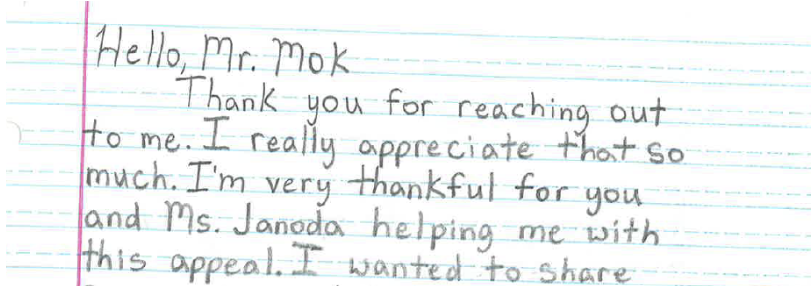 Hello, Mr. Mok
Thank you for reaching out
to me. I really appreciate that so
much. I'm very thankful for you
and Ms. Janoda helping me with
this appeal. I wanted to share